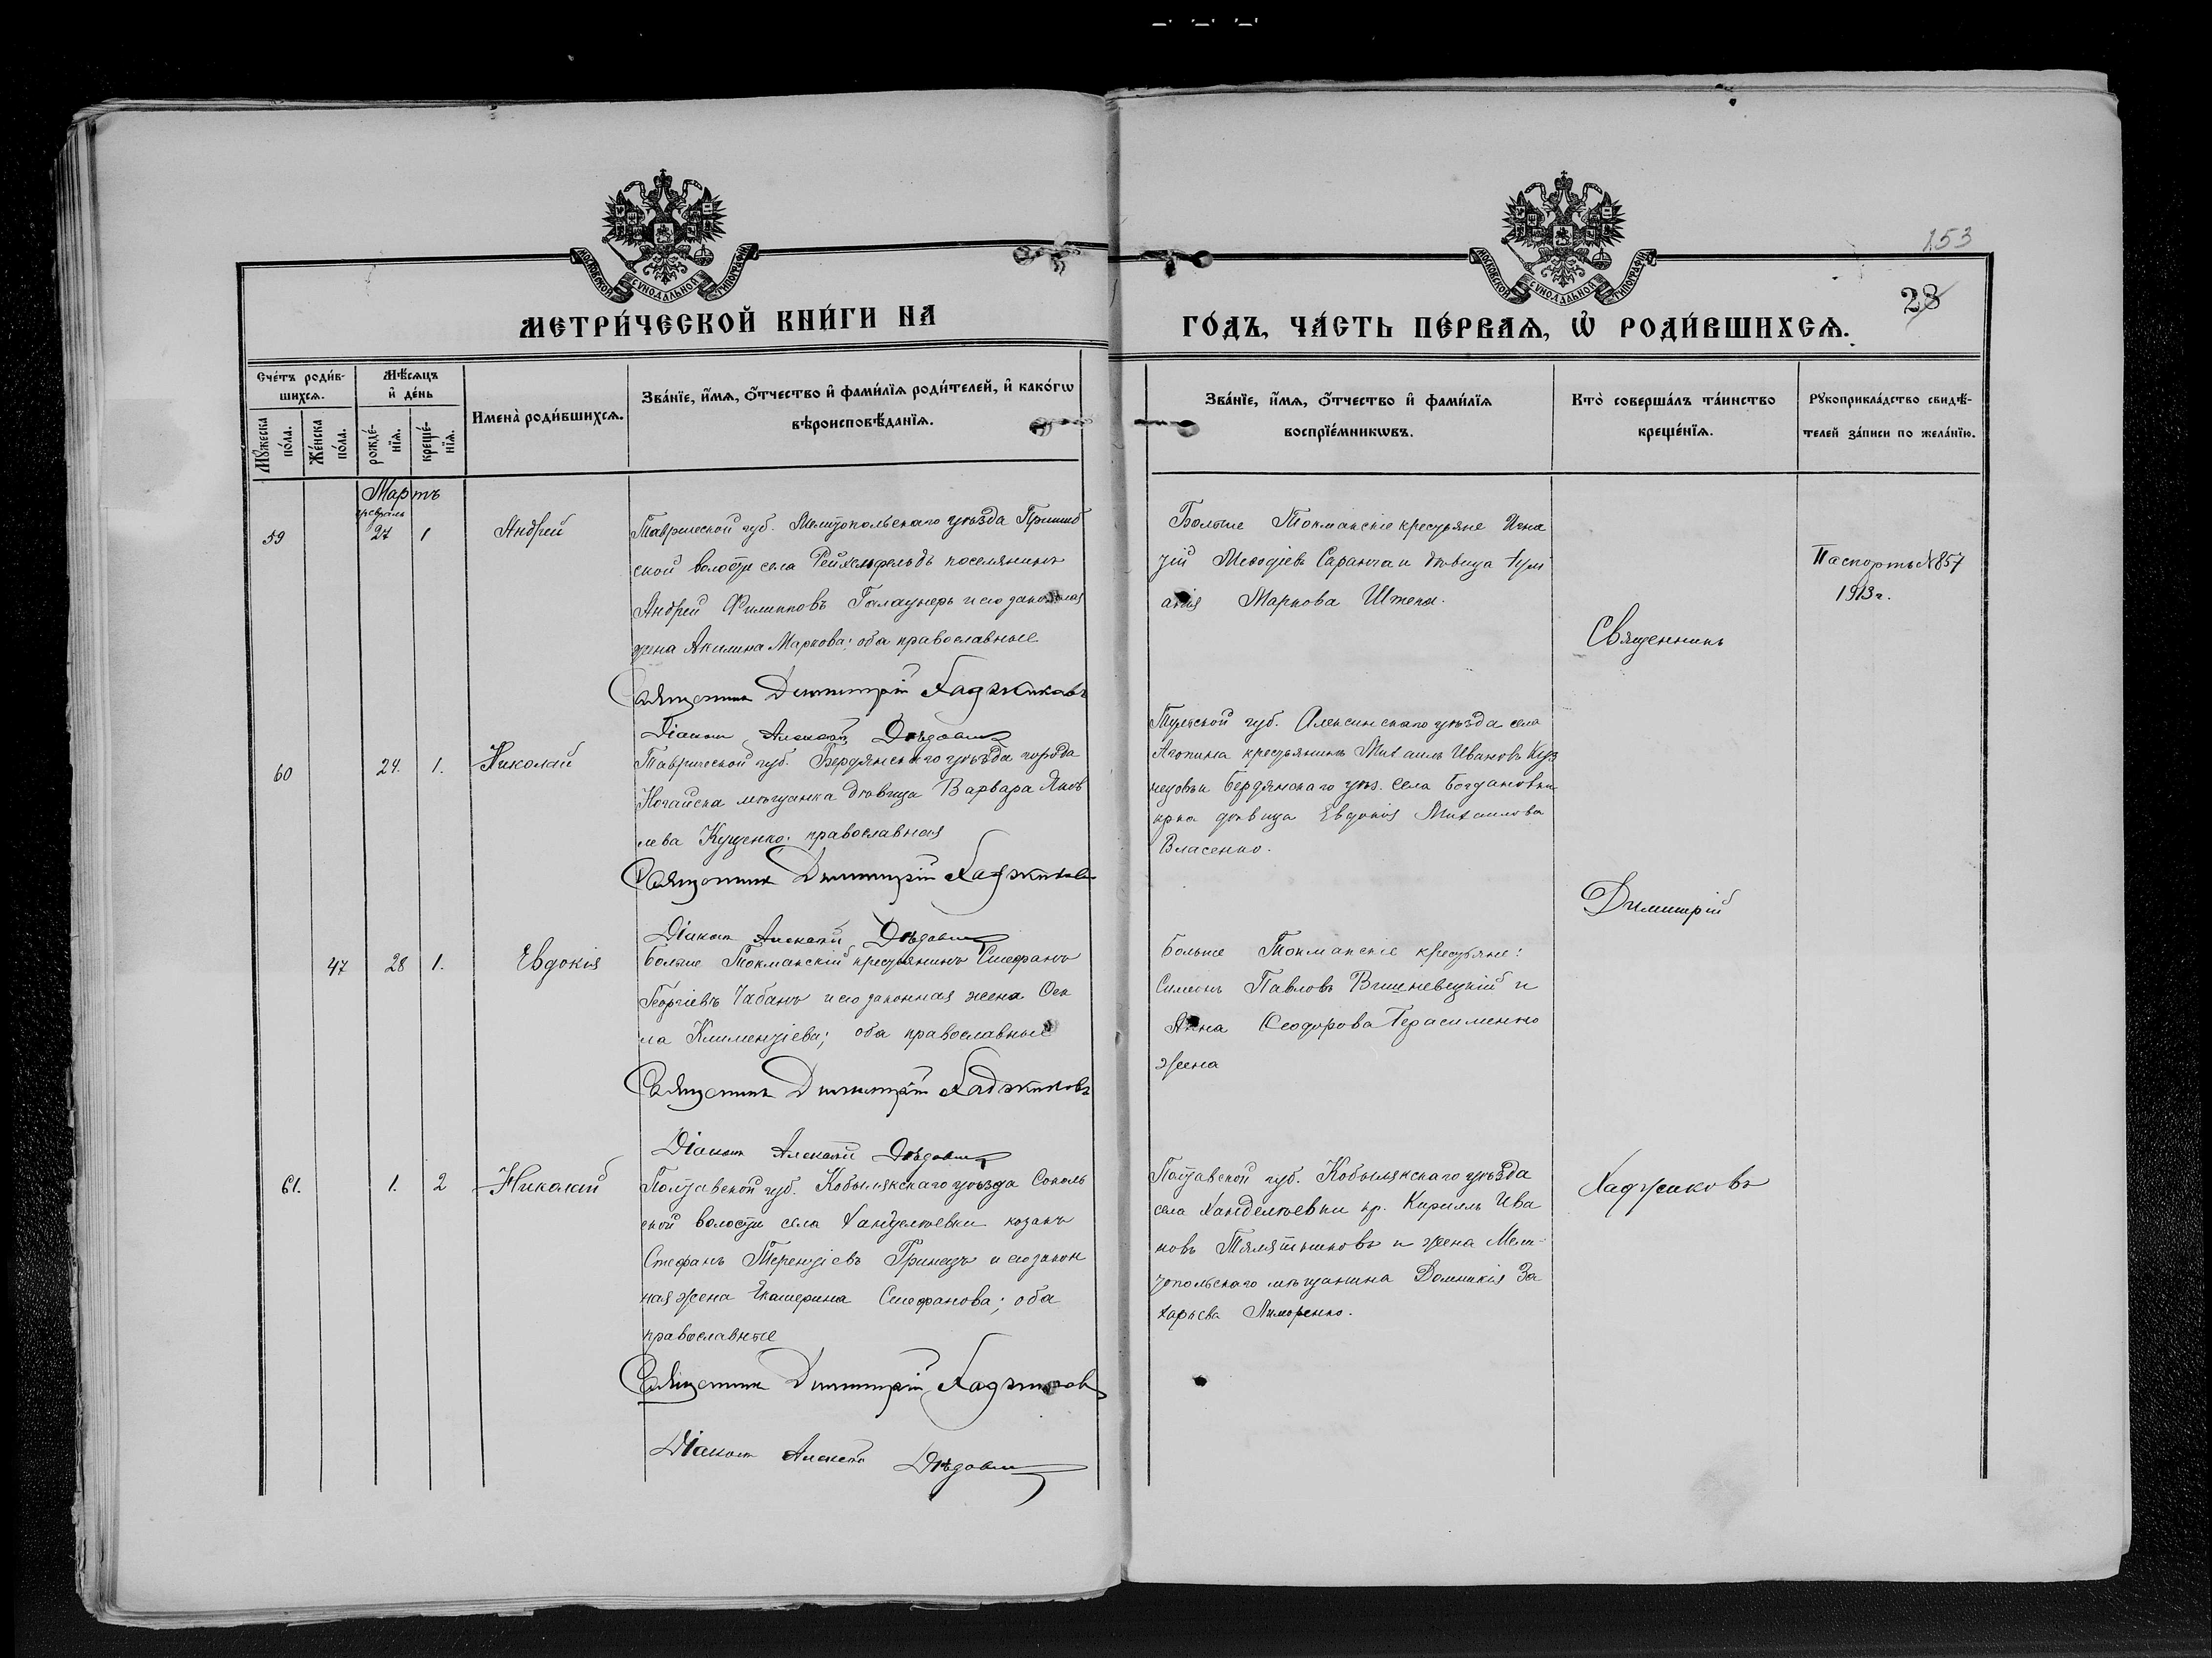 153
28
МОСКОВСКОЙ СѴНОДАЛЬНОЙ ТИПОГРАФІИ
МОСКОВСКОЙ СѴНОДАЛЬНОЙ ТИПОГРАФІИ
МЕТРИ́ЧЕСКОЙ КНИ́ГИ НА
ГО́ДЪ, ЧА́СТЬ ПЕ́РВАѦ, Ѡ҆ РОДИ́ВШИХСѦ.
Сче́тъ роди́в-
шихсѧ.
Мꙋ́жеска по́ла.
Же́нска по́ла.
Мѣ́сѧцъ
и҆ де́нь
рожде́-
нїѧ.
креще́-
нїѧ.
Имена̀ роди́вшихсѧ.
Зва́нїе, и҆́мѧ, ѻ҆́тчество и҆ фами́лїѧ роди́телей, и҆ како́гѡ
вѣроисповѣ́данїѧ.
Зва́нїе, и҆́мѧ, ѻ҆́тчество и҆ фами́лїѧ
воспрїе́мникѡвъ.
Кто̀ соверша́лъ та́инство
креще́нїѧ.
Рꙋкоприкла́дство свидѣ́-
телей за́писи по жела́нїю.
Мартъ
февраль
59
27
1
Андрей
Таврической губ. Мелитопольскаго уѣзда Пришиб
ской волости села Рейхенфельдъ поселянинъ
Андрей Филипповъ и его законная
жена Акилина Маркова; оба православные
Священникъ Димитрій Хаджиковъ
Діаконъ Алексѣй
Больше Токмакскіе крестьяне Игна
тій Меѳодіевъ Саранча и дѣвица Іули
анія Маркова Штепа.
Священникъ
Паспортъ №857
1913 г.
60
24.
1.
Николай
Таврической губ. Бердянскаго уѣзда города
Ногайска мѣщанка дѣвица Варвара Яков
лева Куценко; православная
Священникъ Димитрій Хаджиковъ
Діаконъ Алексѣй
Тульской губ. Алексинскаго уѣзда села
крестьянинъ Михаилъ Ивановъ Куз
нецовъ и Бердянскаго уѣз. села Богдановки
кр-ка дѣвица Евдокія Михаилова
Власенко.
Димитрій
47
28
1.
Евдокія
Больше Токмакскій крестьянинъ Стефанъ
Георгіевъ Чабанъ и его законная жена Ѳек
ла Климентіева; оба православные
Священникъ Димитрій Хаджиковъ
Діаконъ Алексѣй
Больше Токмакскіе крестьяне:
Симеонъ Павловъ Вишневецкій и
Анна Ѳеодорова Герасименко
жена
61.
1.
2
Николай
Полтавской губ. Кобылякскаго уѣзда Соколь
ской волости села Ханделѣевки козакъ
Стефанъ Терентіевъ и его закон
ная жена Екатерина Стефанова; оба
православные
Священникъ Димитрій Хаджиковъ
Діаконъ Алексѣй
Полтавской губ. Кобылякскаго уѣзда
села Ханделѣевки кр. Кириллъ Ива
новъ и жена Мели-
топольскаго мѣщанина Домникія За
харьева
Хаджиковъ